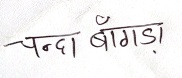 चन्दा बाँगड़ा